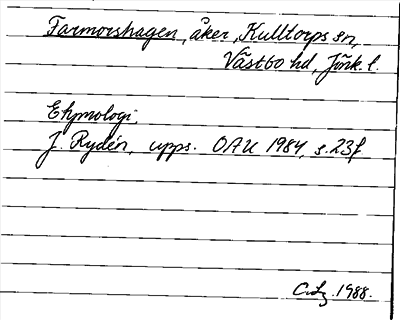 Farmorshagen, åker, Kulltorps sn,
Västbo hd, Jönk. l.
Etymologi.
J. Rydén, upps. OAU 1984, s. 23f
1988.